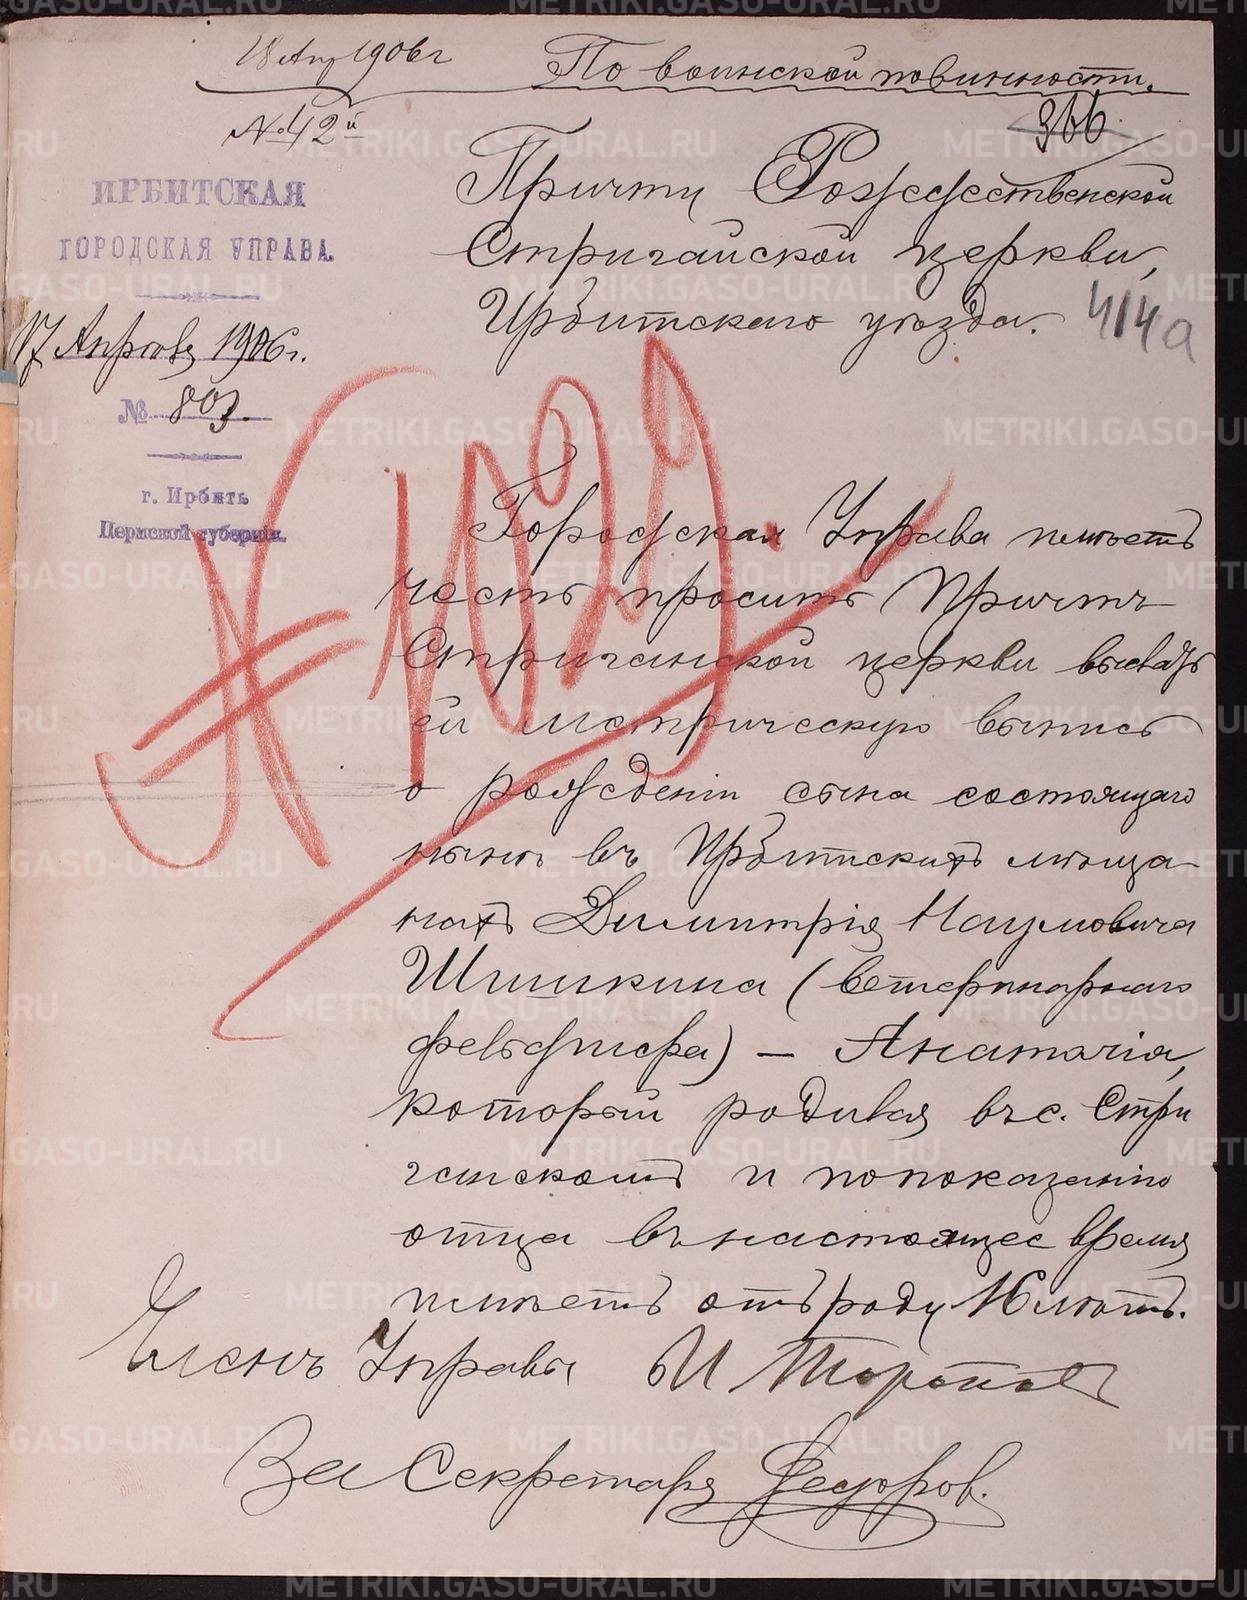 18 Апр 1906 г
По воинской повинности.
№ 42й
366
ИРБИТСКАЯ
ГОРОДСКАЯ УПРАВА.
17 Апрѣля 1906 г.
№ 803.
г. Ирбитъ
Пермской губерніи.
Причту Рождественской
Стриганской церкви,
Ирбитскаго уѣзда.
414а
№ 1029.
Городская Управа имѣетъ
честь просить Причтъ
Стриганской церкви выслать
ей метрическую выпись
о рожденіи сына состоящаго
нынѣ въ Ирбитскихъ мѣща
нахъ Димитрія Наумовича
Шишкина (ветеринарнаго
фельдшера) — Анатолія,
который родился въ с. Стри
ганскомъ и по показанію
отца въ настоящее время
имѣетъ отъ роду 16 лѣтъ.
Членъ Управы И Торопов
За Секретаря Федоров.
METRIKI.GASO-URAL.RU